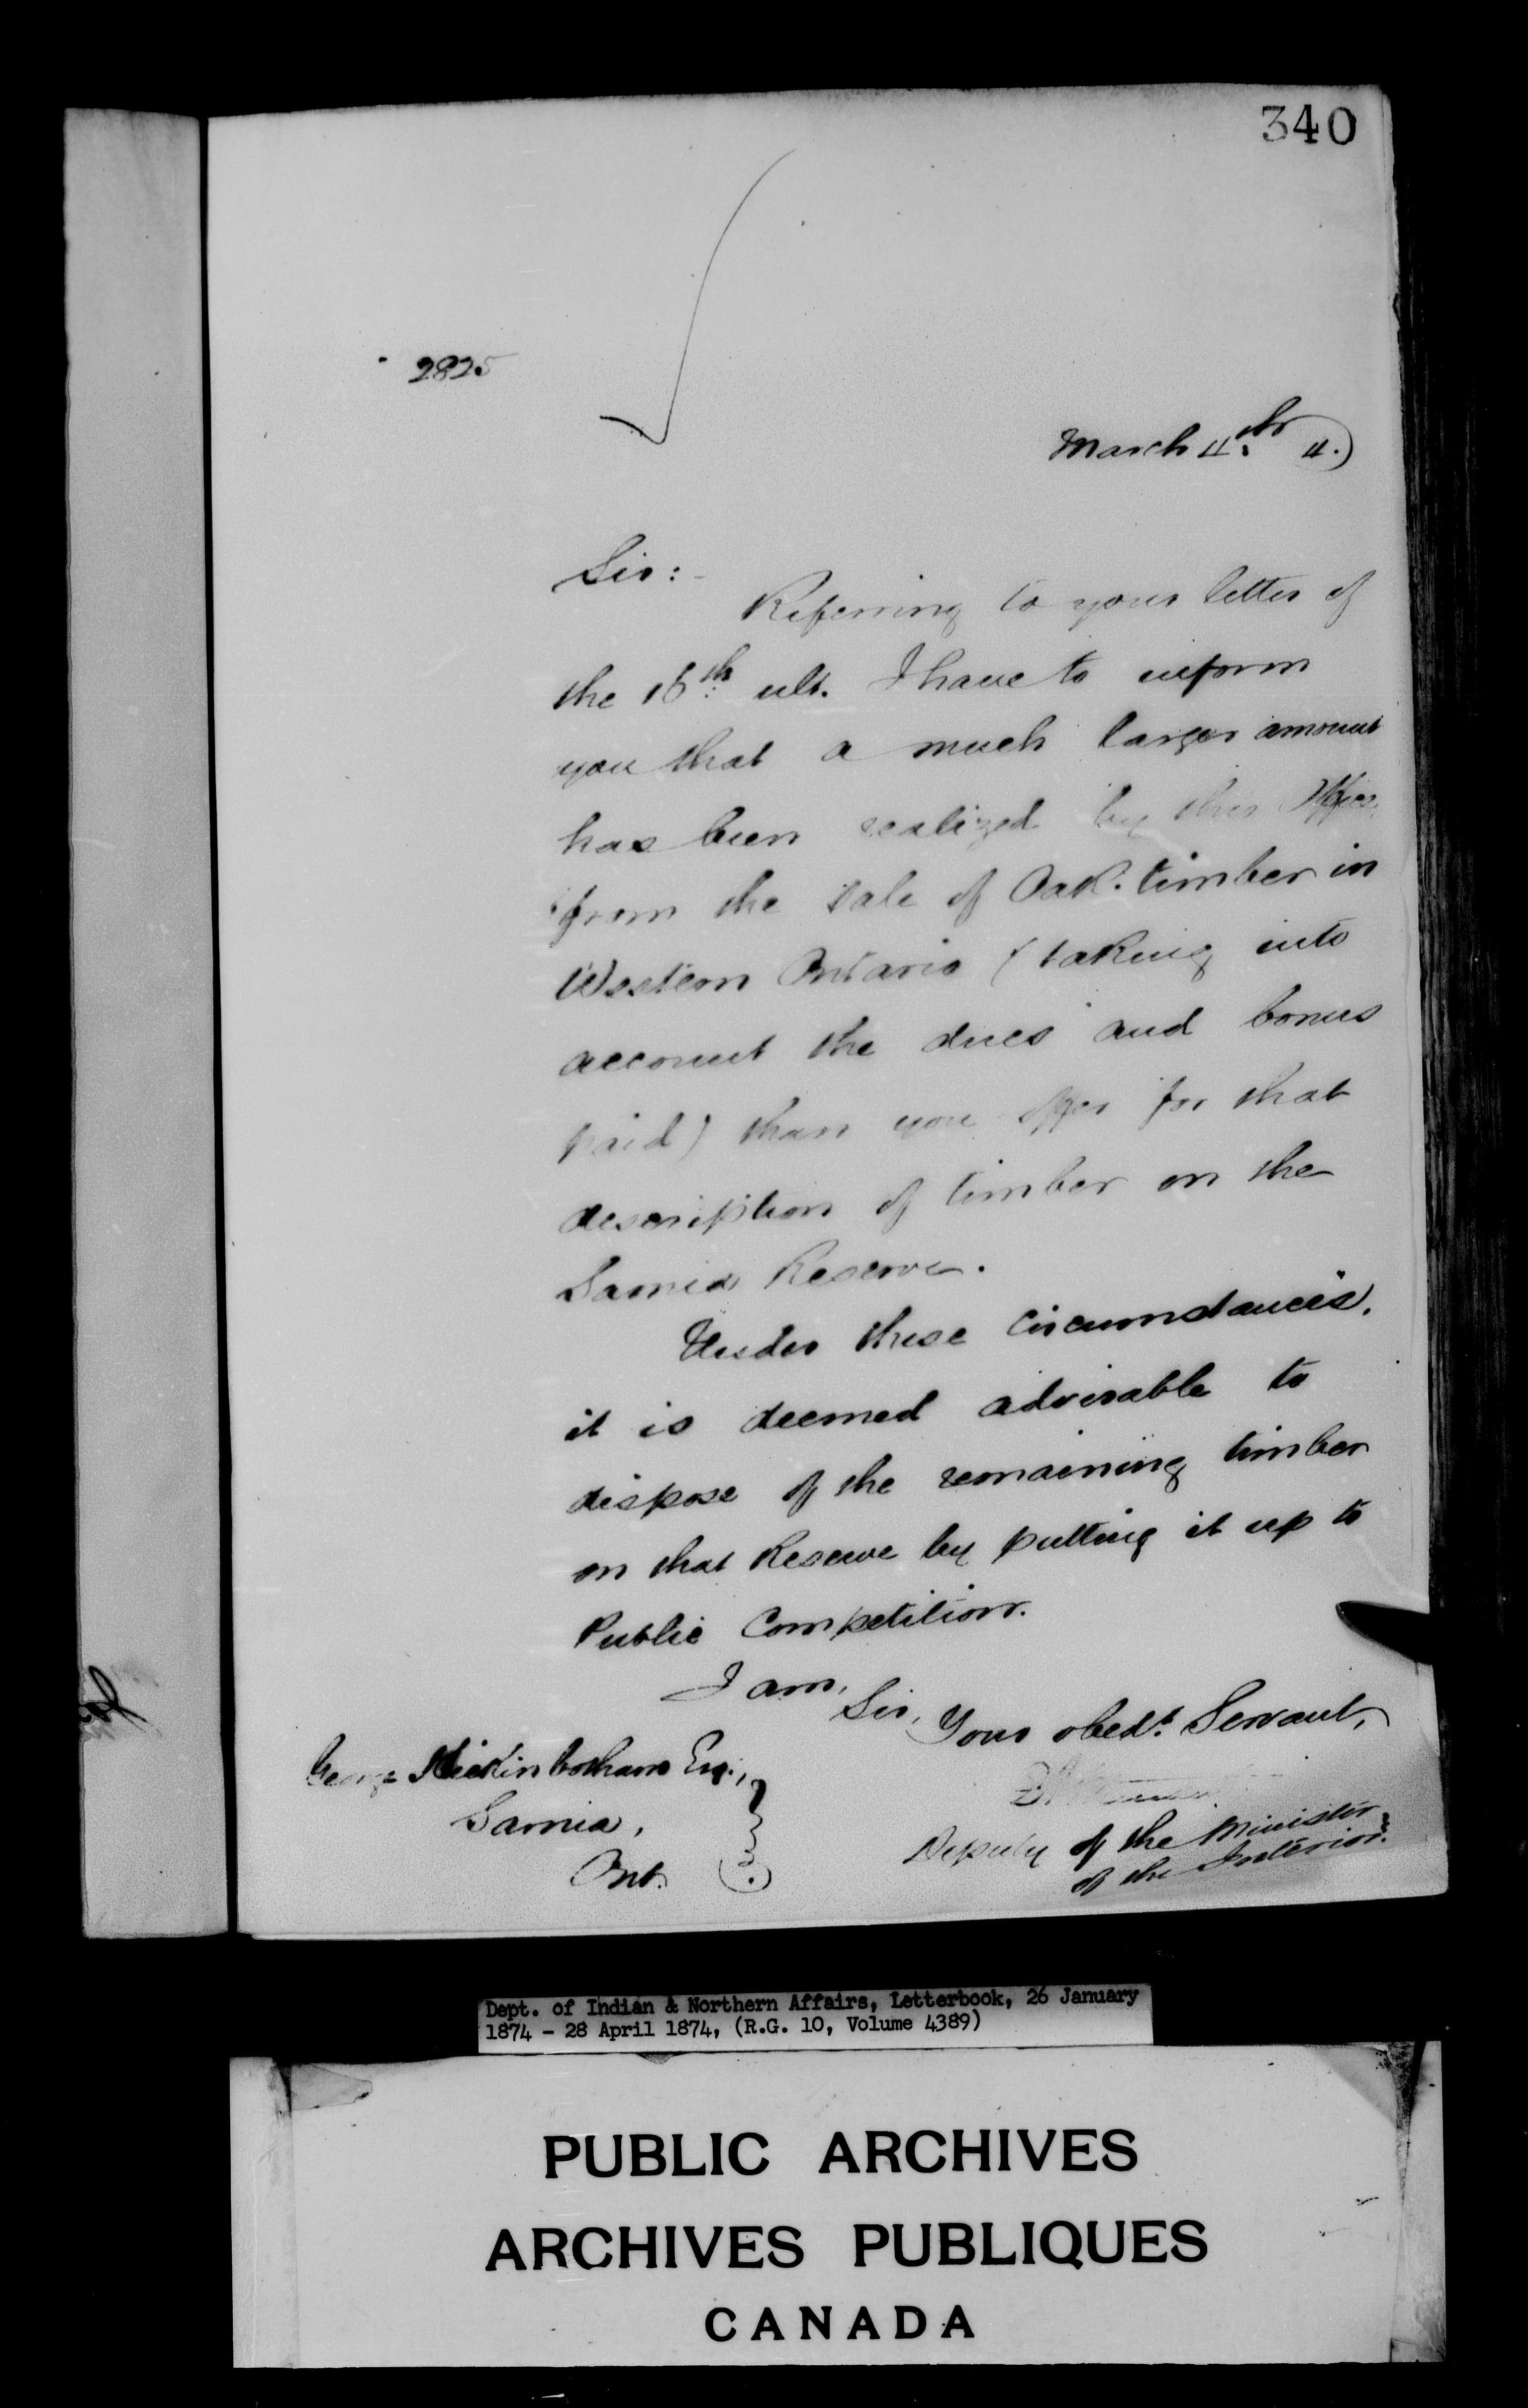 340
2825
March 4th 4.)
Sir:-
Referring to your letter of
the 16th ult. I have to inform
you that a much larger amount
has been realized by this Office,
from the sale of Oak timber in
Western Ontario (taking into
account the dues and bonus
paid) than you offer for that
description of timber on the
Sarnia Reserve.
Under these circumstances,
it is deemed advisable to
dispose of the remaining timber
on that Reserve by putting it up to
Public Competition.
I am,
Sir,
Your obedt. Servant,
George Hickinbotham Esq.,
Sarnia,
Ont.
Deputy of the Minister
of the Interior.
Dept. of Indian & Northern Affairs, Letterbook, 26 January
1874 - 28 April 1874, (R.G. 10, Volume 4389)
PUBLIC ARCHIVES
ARCHIVES PUBLIQUES
CANADA